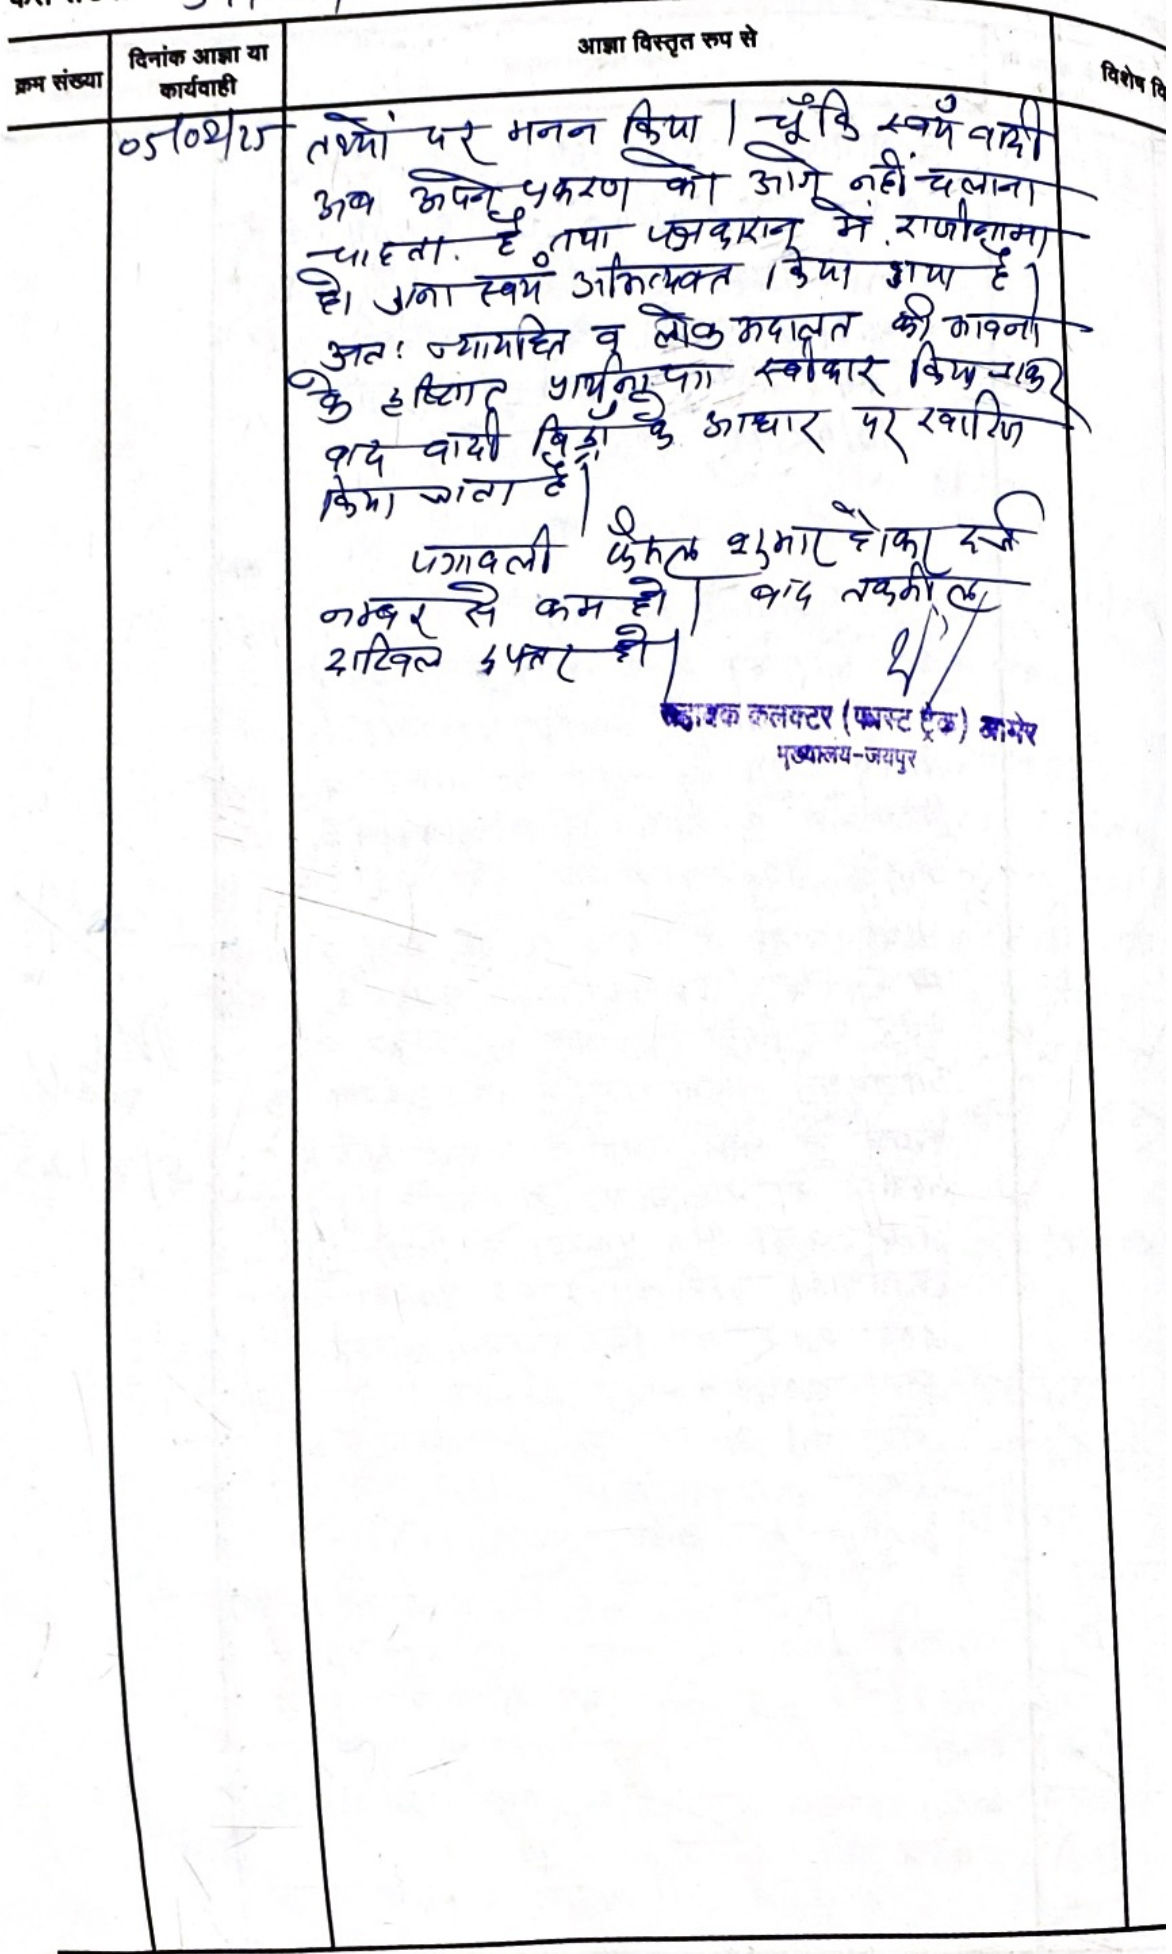 क्रम संख्या
दिनांक आज्ञा या
कार्यवाही
आज्ञा विस्तृत रूप से
विशेष वि
05/02/25
तथ्यों पर मनन किया। चूँकि स्वयं वादी
अब अपने प्रकरण को आगे नहीं चलाना
चाहता है तथा पक्षकारान् में राजीनामा
हो जाना स्वयं अभिव्यक्त किया गया है।
अतः न्यायहित व लोक अदालत की भावना
के दृष्टिगत प्रार्थना पत्र स्वीकार किया जाकर
वाद वादी विड्रो के आधार पर खारिज
किया जाता है।
पत्रावली फैसल शुमार होकर दर्ज
नम्बर से कम हो। बाद तकमील
दाखिल दफ्तर हो।
सहायक कलक्टर (फास्ट ट्रेक) आमेर
मुख्यालय-जयपुर